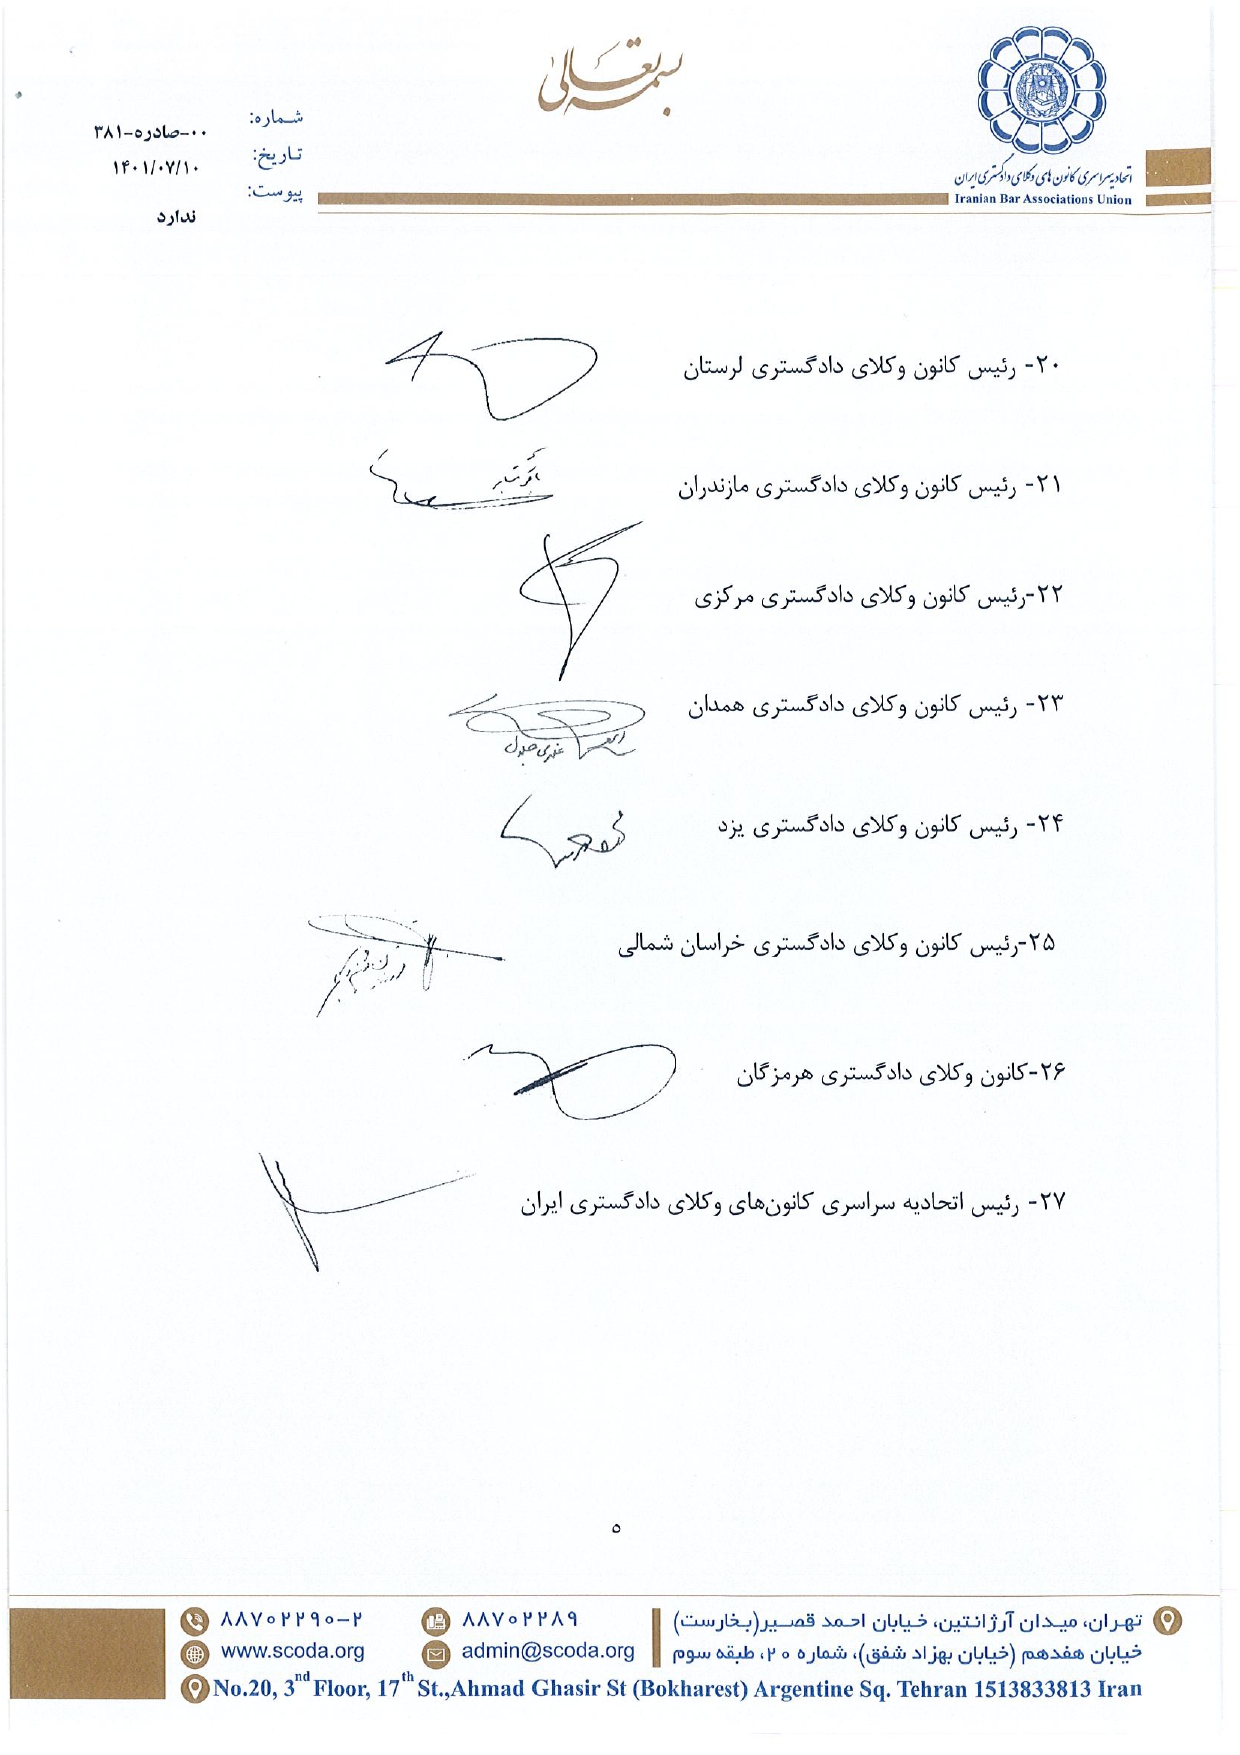 بسمه تعالی
اتحادیه سراسری کانون های وکلای دادگستری ایران
Iranian Bar Associations Union
شماره: ۰۰-صادره-۳۸۱
تاریخ: ۱۴۰۱/۰۷/۱۰
پیوست: ندارد
۲۰- رئیس کانون وکلای دادگستری لرستان
۲۱- رئیس کانون وکلای دادگستری مازندران
۲۲-رئیس کانون وکلای دادگستری مرکزی
۲۳- رئیس کانون وکلای دادگستری همدان
۲۴- رئیس کانون وکلای دادگستری یزد
۲۵-رئیس کانون وکلای دادگستری خراسان شمالی
۲۶-کانون وکلای دادگستری هرمزگان
۲۷- رئیس اتحادیه سراسری کانون‌های وکلای دادگستری ایران
۵
تهران، میدان آرژانتین، خیابان احمد قصیر(بخارست)
خیابان هفدهم (خیابان بهزاد شفق)، شماره ۲۰، طبقه سوم
۸۸۷۰۲۲۸۹
admin@scoda.org
۸۸۷۰۲۲۹۰-۲
www.scoda.org
No.20, 3nd Floor, 17th St.,Ahmad Ghasir St (Bokharest) Argentine Sq. Tehran 1513833813 Iran